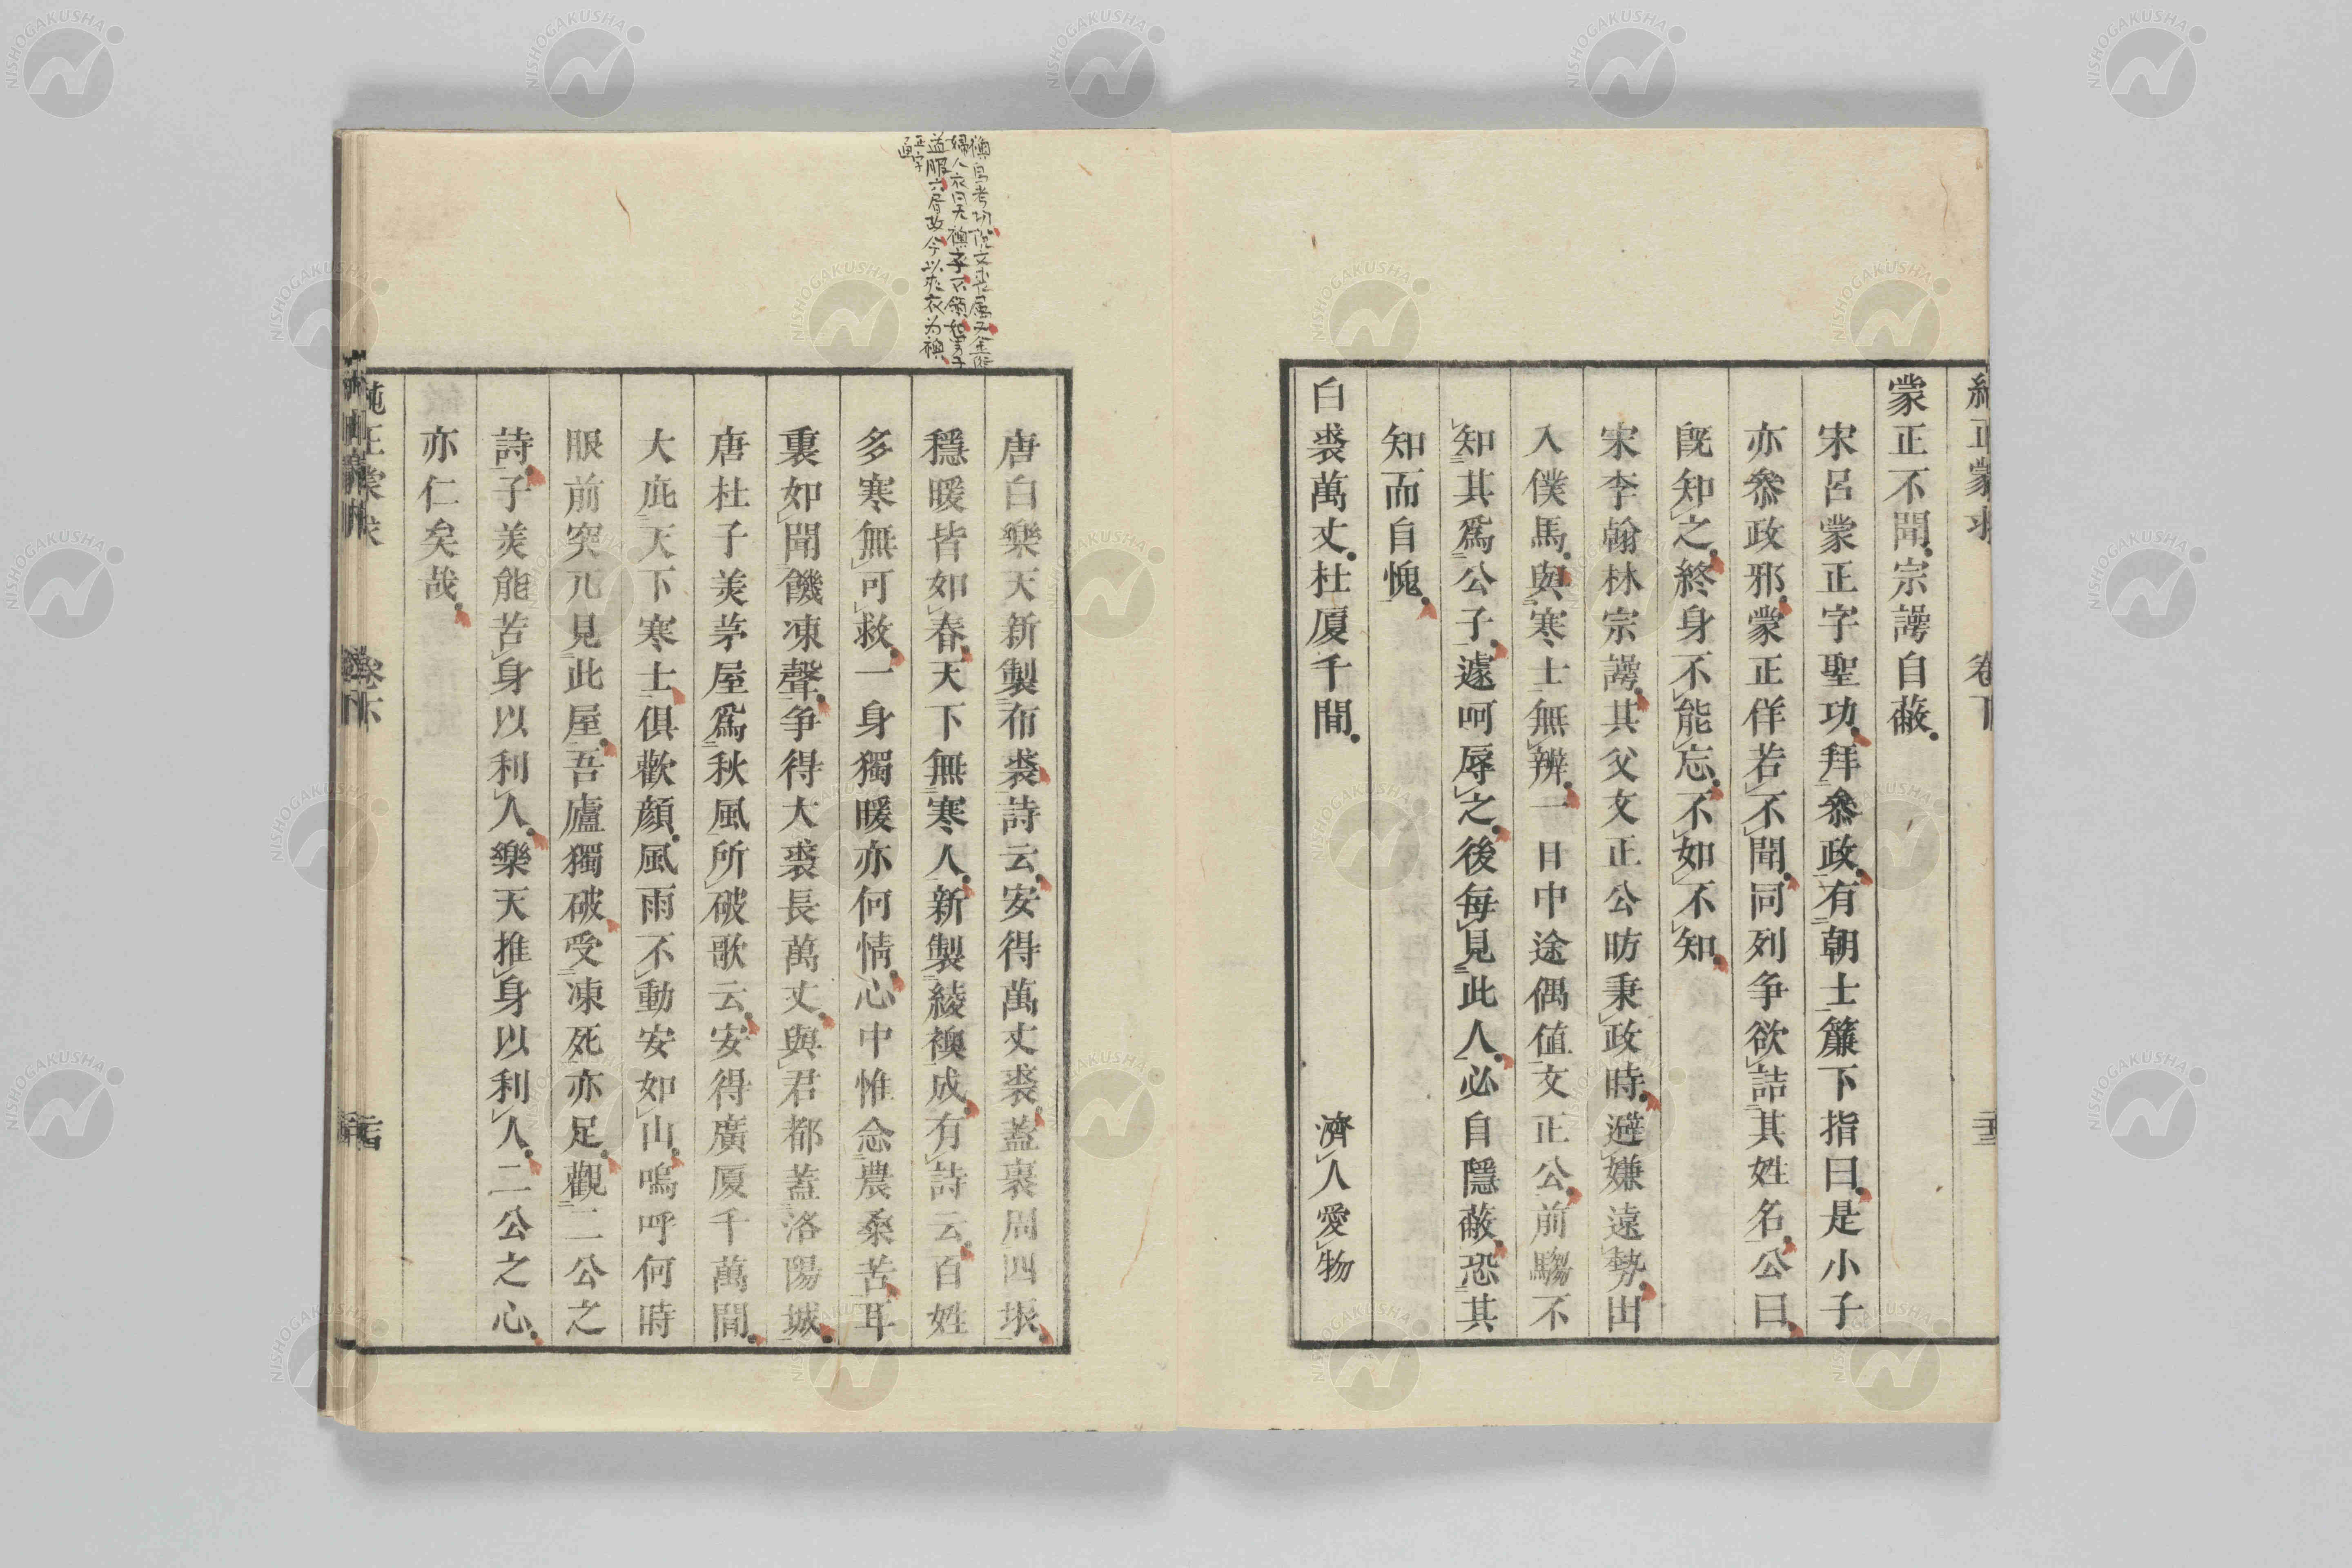 蒙正不聞宗諤自蔽
宋呂蒙正字聖功拜叅政有朝士簾下指曰是小子
亦叅政邪蒙正佯若不聞同列爭欲詰其姓名公曰
旣知之終身不能忘不如不知
宋李翰林宗諤其父文正公昉秉政時避嫌遠勢出
入僕馬與寒士無辨一日中途偶値文正公前騶不
知其爲公子遽呵辱之後每見此人必自隱蔽恐其
知而自愧
白裘萬丈杜厦千間 濟人愛物
唐白樂天新製布裘詩云安得萬丈裘蓋裹周四垠
穩暖皆如春天下無寒人新製綾襖成有詩云百姓
多寒無可救一身獨暖亦何情心中惟念農桑苦耳
裏如聞饑凍聲爭得大裘長萬丈與君都蓋洛陽城
唐杜子美茅屋爲秋風所破歌云安得廣厦千萬間
大庇天下寒士俱歡顏風雨不動安如山嗚呼何時
眼前突兀見此屋吾廬獨破受凍死亦足觀二公之
詩子美能苦身以利人樂天推身以利人二公之心
亦仁矣哉
卷下
NISHOGAKUSHA